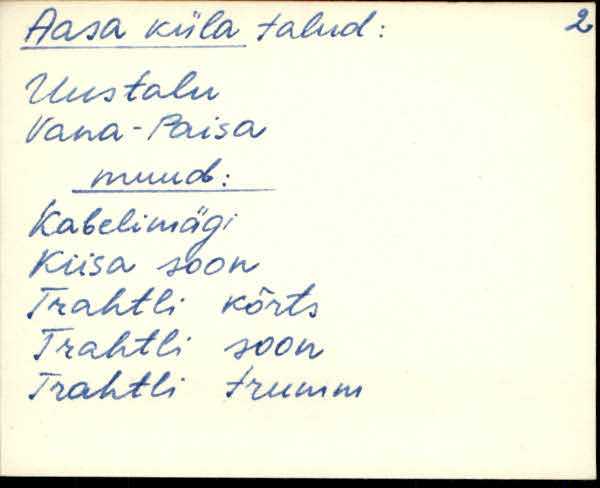 Aasa küla talud: 2
Uustalu
Vana-Paisa
muud:
Kabelimägi
Kiisa soon
Trahtli kõrts
Trahtli soon
Trahtli trumm